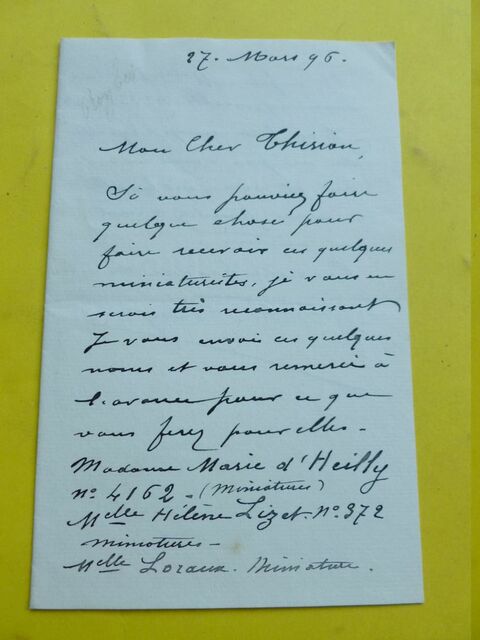 27. Mars 96.
Mon Cher Thirion,
Si vous pouviez faire
quelque chose pour
faire recevoir ces quelques
miniaturistes, je vous en
serais très reconnaissant
Je vous envoie ces quelques
noms et vous remercie à
l'avance pour ce que
vous ferez pour elles -
Madame Marie d'Heilly
no 4162 - (Miniatures)
Melle Hélène Lizet. No 372
Miniatures -
Melle Loraux. Miniature.